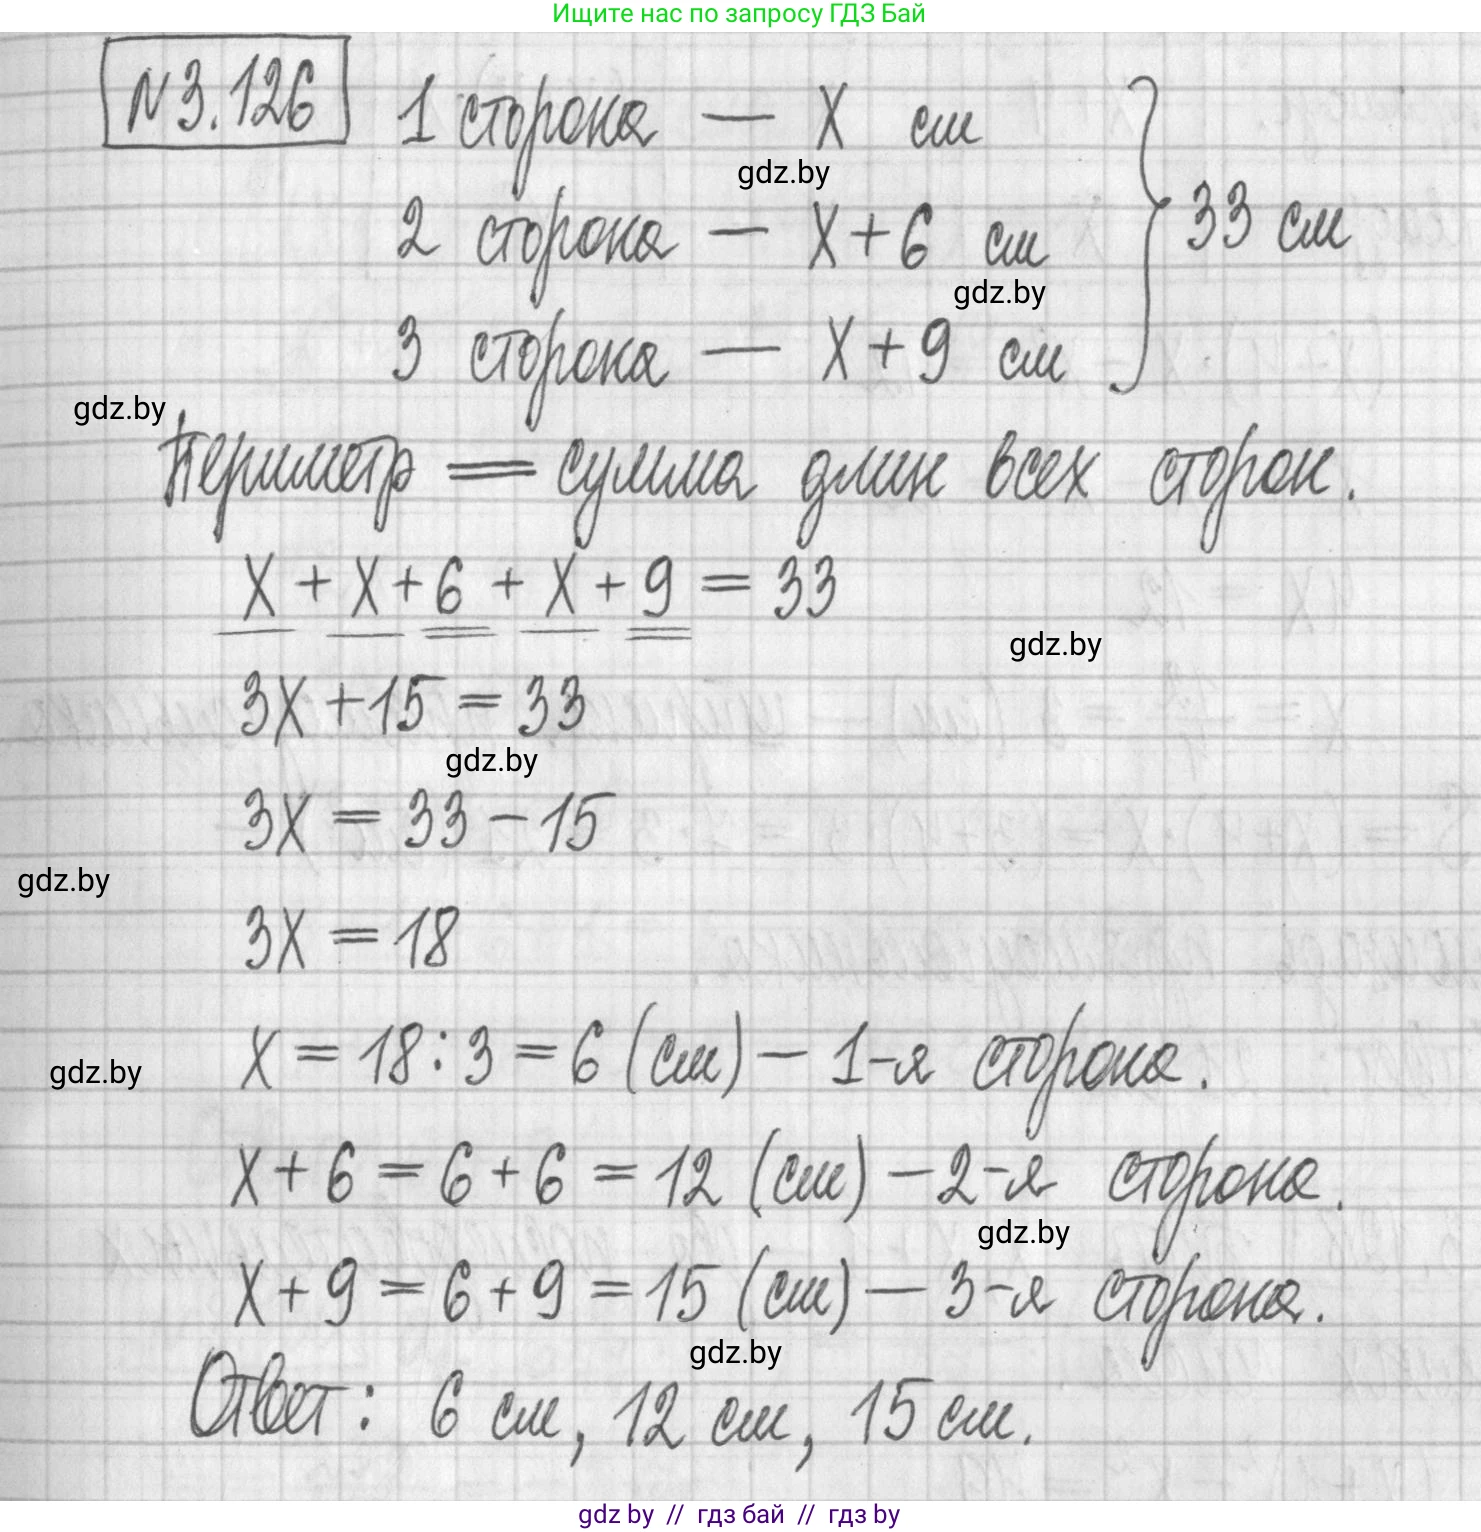 Ищите нас по запросу ГДЗ Бай
№3.126 1 сторона — x см
gdz.by
2 сторона — x+6 см } 33 см
gdz.by
3 сторона — x+9 см
gdz.by
Периметр = сумма длин всех сторон.
x + x + 6 + x + 9 = 33
gdz.by
3x + 15 = 33
gdz.by
3x = 33 - 15
gdz.by
3x = 18
x = 18 : 3 = 6 (см) — 1-я сторона.
gdz.by
x + 6 = 6 + 6 = 12 (см) — 2-я сторона.
gdz.by
x + 9 = 6 + 9 = 15 (см) — 3-я сторона.
gdz.by
Ответ: 6 см, 12 см, 15 см.
gdz by // гдз бай // гдз by